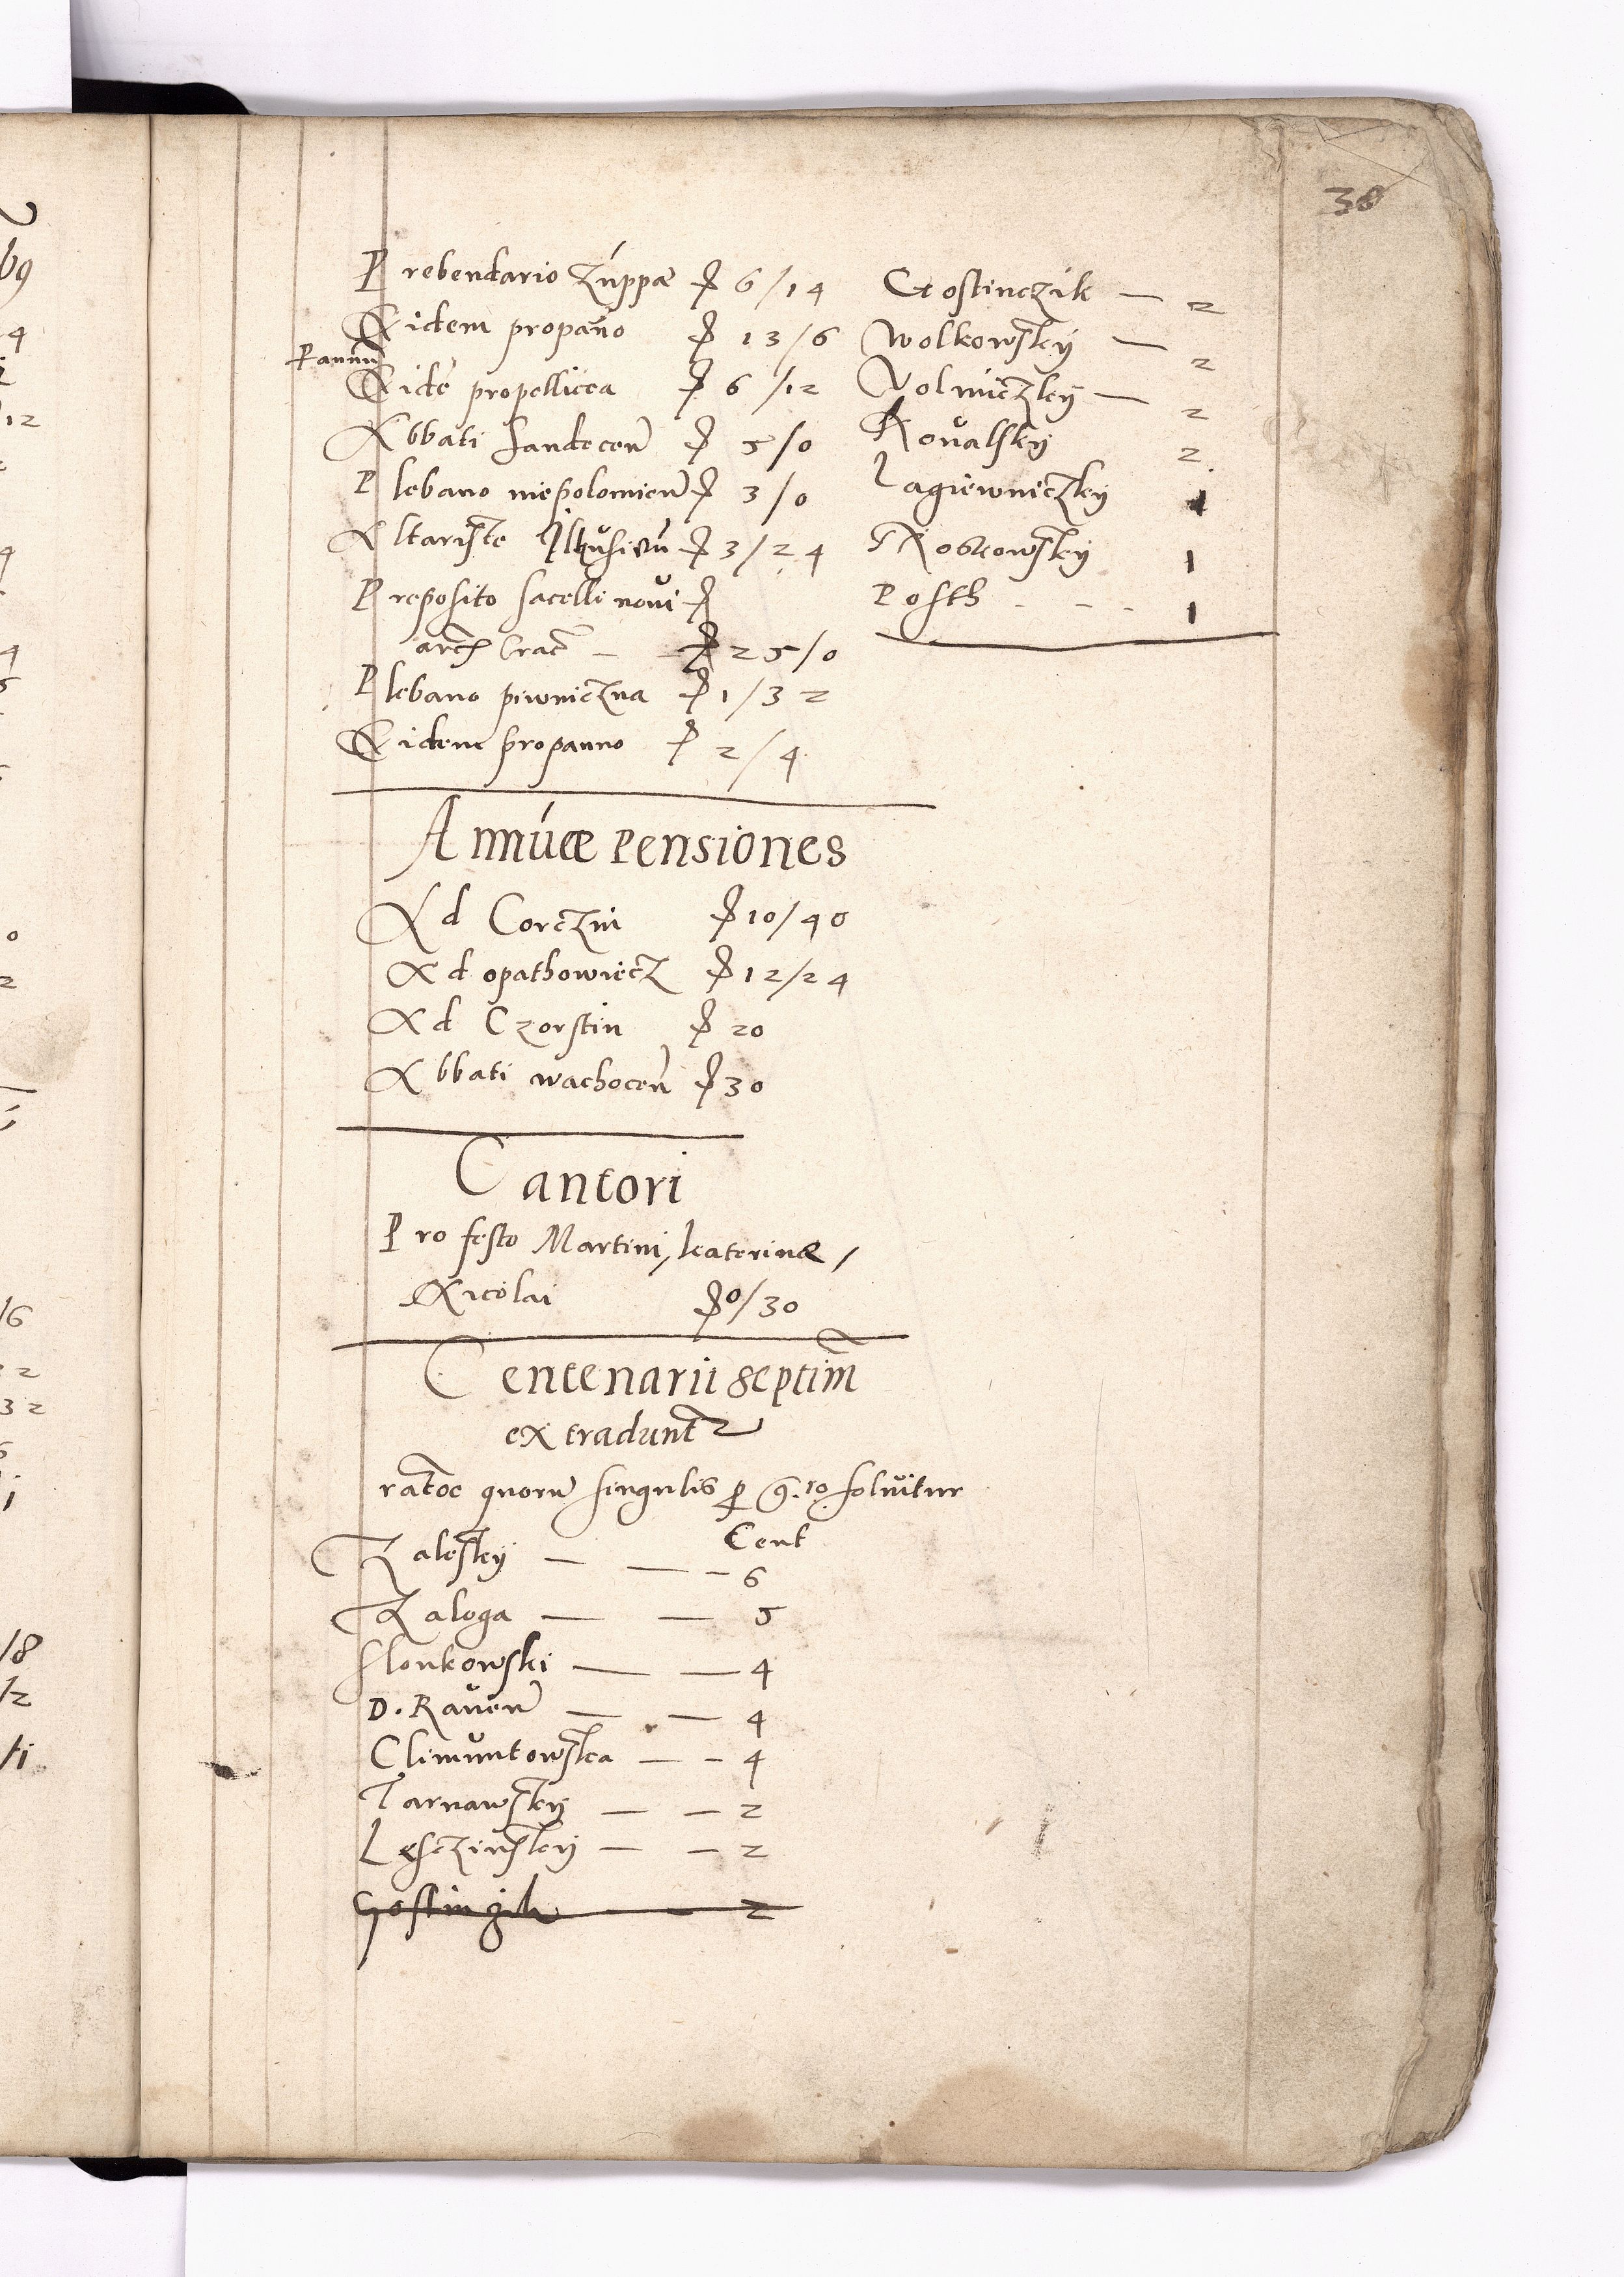 38
Prebendario Zuppae fl 6/14
Eidem propano fl 13/6
P annu
Eide propellicea fl 6/12
Abbati Sandecen fl 5/0
Plebano niepolomicen fl 3/0
Altariste Ilkusien fl 3/24
Preposito sacelli novi fl
arc Crac fl 25/0
Plebano piwniczna fl 1/32
Eidem propanno fl 2/4
Gostinczik — 2
Wolkowsky — 2
Volniczky — 2
Kovalsky 2
Lagiewniczky 1
Robkowsky 1
Posth - - - 1
Annuae Pensiones
Ad Corczin fl 10/40
Ad opathowiecz fl 12/24
Ad Czorstin fl 20
Abbati wachocen fl 30
Cantori
Pro festo Martini, katerinae,
Nicolai fl 0/30
Centenarii septim
extradunt
ratoe quoru singulis p g. 10 solvitur
Cent
Zalesky — — - 6
Zaloga — — 5
Slonkowski — — 4
D. Raven — — 4
Climuntowska — - 4
Tarnawsky — — 2
Lesczinsky — — 2
Gostinzik — 2